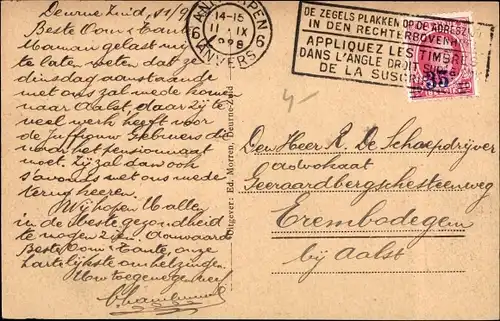 Deurne Zuid, 11/9
Beste Oom & Tante,
Maman gelast mij
te laten weten dat ze
dinsdag aanstaande
met ons zal mede komen
naar Aalst, daar zij te
veel werk heeft voor
de Juffrouw
naar het pensionnaat
moet. Zij zal dan ook
s'avonds met ons mede
terug keeren.
Wij hopen U allen
in de beste gezondheid
te mogen zien. Aanvaard
Beste Oom & Tante, onze
hartelijkste omhelzingen.
Uw toegenegen neef
ANTWERPEN
14-15
11 IX
6 6
ANVERS
DE ZEGELS PLAKKEN OP DE ADRESZIJDE
IN DEN RECHTERBOVENHOEK
APPLIQUEZ LES TIMBRES
DANS L'ANGLE DROIT SUP
DE LA SUSCRIPTION
35
Uitgever: Ed. Morren, Deurne-Zuid
Den Heer R. De Schaepdrijver
advokaat
Geeraardbergschesteenweg
Erembodegem
bij Aalst